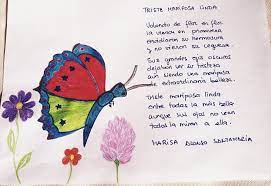 TRISTE MARIPOSA LINDA
Volando de flor en flor
la vieron en primavera
envidiaron su hermosura
y no vieron su ceguera.
Sus grandes ojos oscuros
dejaban ver su tristeza
aun siendo una mariposa
de extraordinaria belleza.
Triste mariposa linda
entre todas la más bella
aunque sus ojos no vean
todos la miran a ella.
MARISA ALONSO SANTAMARÍA